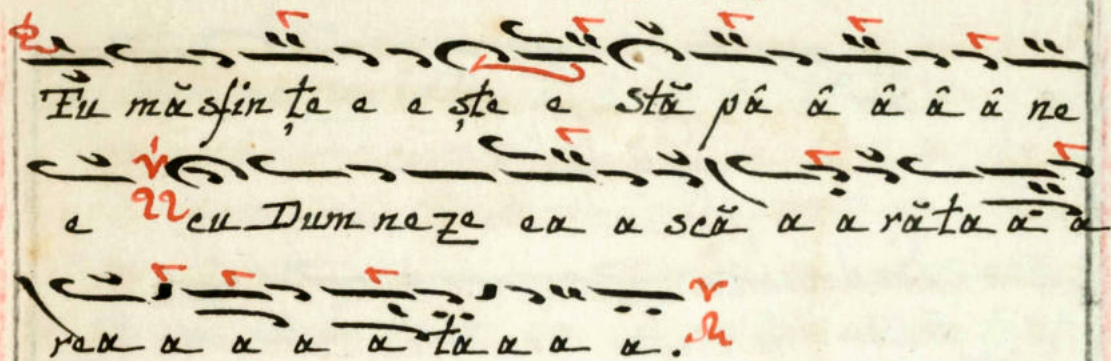 Tu mă sfin țe e e ște e stă pâ â â â â ne
e cu Dum ne ze ea a scă a a ră ta a a
rea a a a a ta a a a.